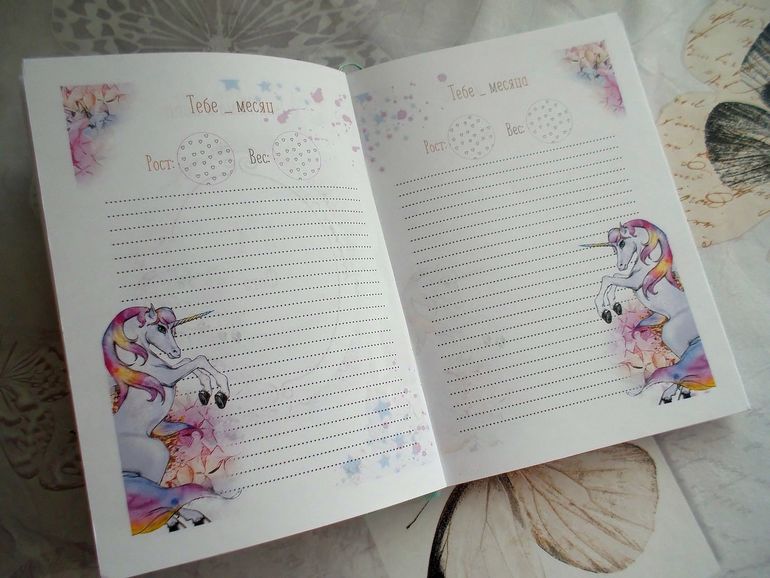 Тебе _ месяц
Рост: Вес:
Тебе _ месяца
Рост: Вес: